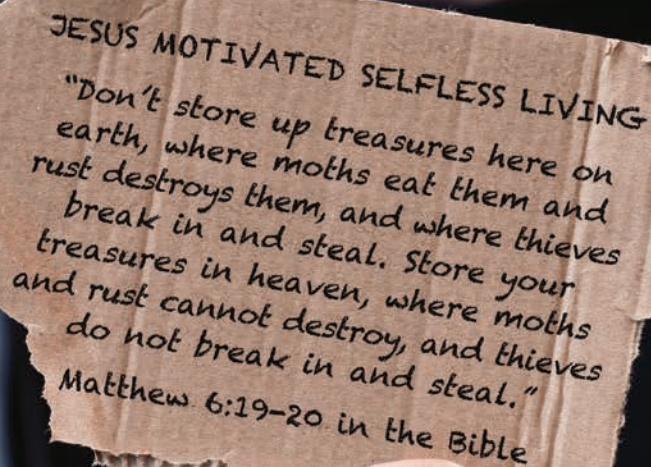 JESUS MOTIVATED SELFLESS LIVING
"Don't store up treasures here on
earth, where moths eat them and
rust destroys them, and where thieves
break in and steal. Store your
treasures in heaven, where moths
and rust cannot destroy, and thieves
do not break in and steal."
Matthew 6:19-20 in the Bible